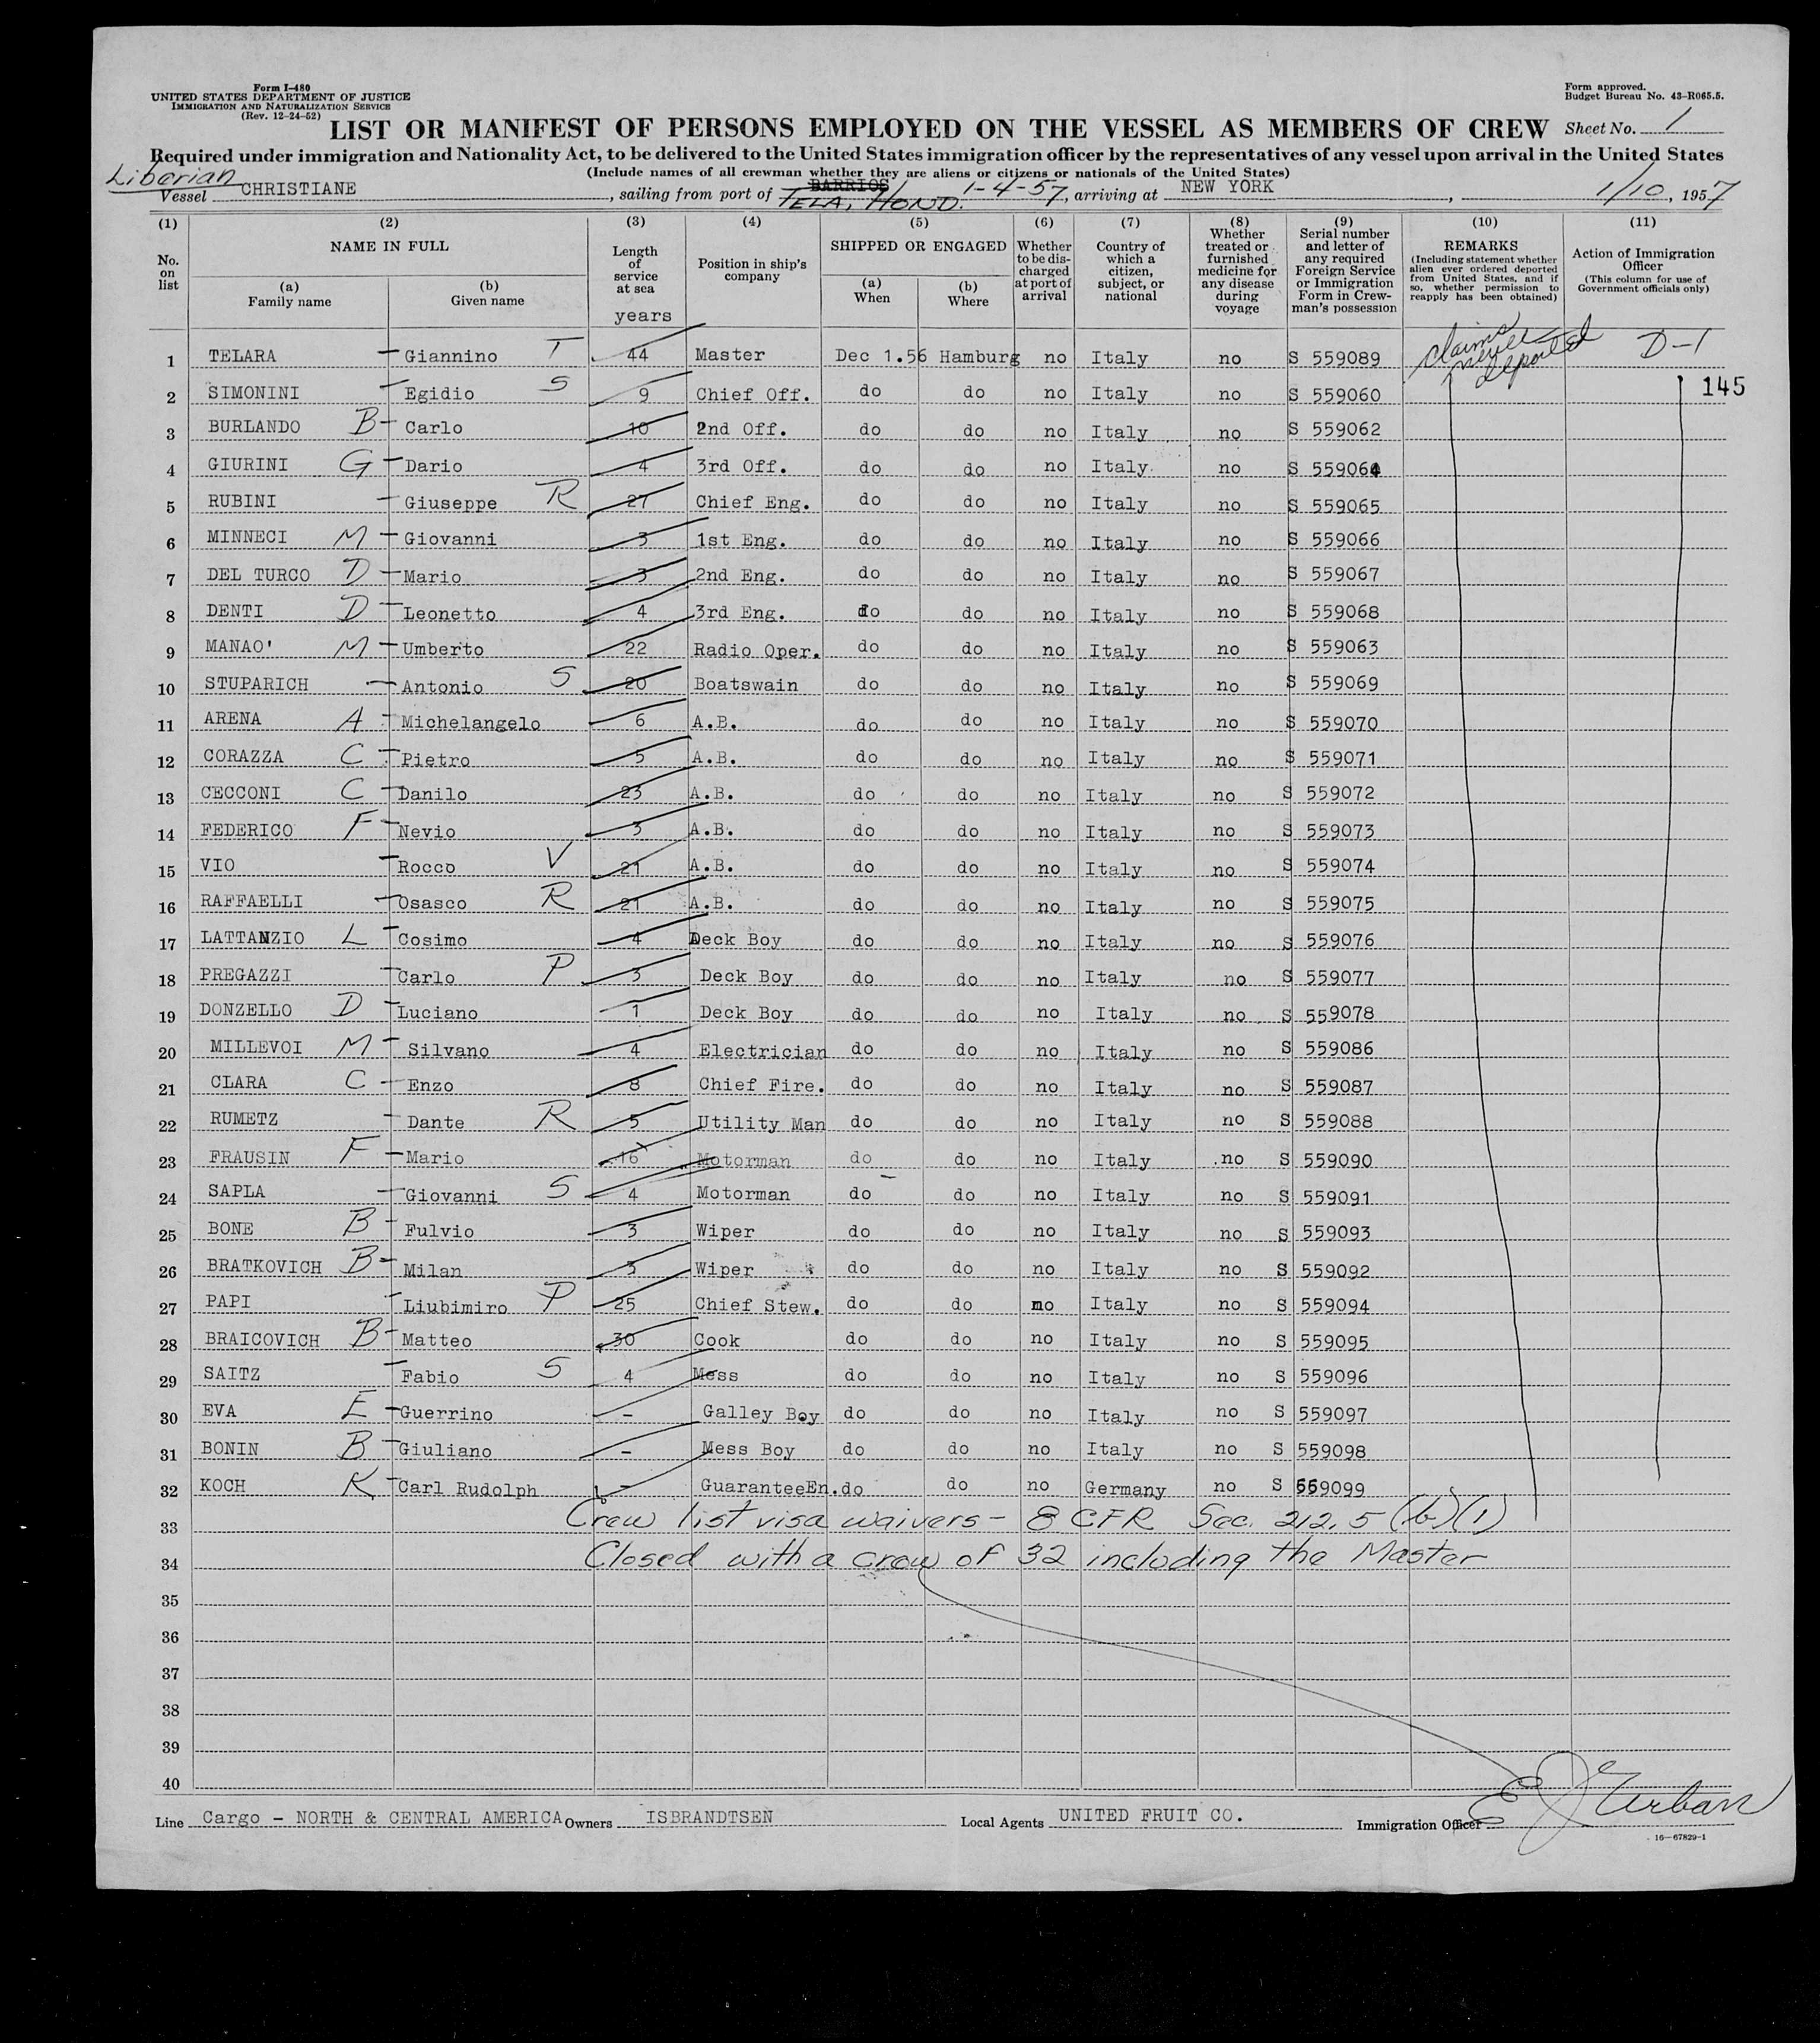 Form I-480
UNITED STATES DEPARTMENT OF JUSTICE
IMMIGRATION AND NATURALIZATION SERVICE
(Rev. 12-24-52)
Form approved.
Budget Bureau No. 43-R065.5.
LIST OR MANIFEST OF PERSONS EMPLOYED ON THE VESSEL AS MEMBERS OF CREW Sheet No. 1
Required under immigration and Nationality Act, to be delivered to the United States immigration officer by the representatives of any vessel upon arrival in the United States
(Include names of all crewman whether they are aliens or citizens or nationals of the United States)
Liberian
Vessel CHRISTIANE, sailing from port of BARRIOS TELA, HOND. 1-4-57, arriving at NEW YORK, 1/10, 1957
(1) (2) (3) (4) (5) (6) (7) (8) (9) (10) (11)
No. on list
NAME IN FULL
(a) Family name
(b) Given name
Length of service at sea
years
Position in ship's company
SHIPPED OR ENGAGED
(a) When
(b) Where
Whether to be discharged at port of arrival
Country of which a citizen, subject, or national
Whether treated or furnished medicine for any disease during voyage
Serial number and letter of any required Foreign Service or Immigration Form in Crewman's possession
REMARKS
(Including statement whether alien ever ordered deported from United States, and if so, whether permission to reapply has been obtained)
Action of Immigration Officer
(This column for use of Government officials only)
1 TELARA — Giannino T 44 Master Dec 1.56 Hamburg no Italy no S 559089 claims never deported D-1
2 SIMONINI — Egidio S 9 Chief Off. do do no Italy no S 559060 145
3 BURLANDO B — Carlo 10 2nd Off. do do no Italy no S 559062
4 GIURINI G — Dario 4 3rd Off. do do no Italy no S 559064
5 RUBINI — Giuseppe R 27 Chief Eng. do do no Italy no S 559065
6 MINNECI M — Giovanni 3 1st Eng. do do no Italy no S 559066
7 DEL TURCO D — Mario 3 2nd Eng. do do no Italy no S 559067
8 DENTI D — Leonetto 4 3rd Eng. do do no Italy no S 559068
9 MANAO' M — Umberto 22 Radio Oper. do do no Italy no S 559063
10 STUPARICH — Antonio S 20 Boatswain do do no Italy no S 559069
11 ARENA A — Michelangelo 6 A.B. do do no Italy no S 559070
12 CORAZZA C — Pietro 5 A.B. do do no Italy no S 559071
13 CECCONI C — Danilo 23 A.B. do do no Italy no S 559072
14 FEDERICO F — Nevio 3 A.B. do do no Italy no S 559073
15 VIO — Rocco V 21 A.B. do do no Italy no S 559074
16 RAFFAELLI — Osasco R 21 A.B. do do no Italy no S 559075
17 LATTANZIO L — Cosimo 4 Deck Boy do do no Italy no S 559076
18 PREGAZZI — Carlo P 3 Deck Boy do do no Italy no S 559077
19 DONZELLO D — Luciano 1 Deck Boy do do no Italy no S 559078
20 MILLEVOI M — Silvano 4 Electrician do do no Italy no S 559086
21 CLARA C — Enzo 8 Chief Fire. do do no Italy no S 559087
22 RUMETZ — Dante R 5 Utility Man do do no Italy no S 559088
23 FRAUSIN F — Mario 16 Motorman do do no Italy no S 559090
24 SAPLA — Giovanni S 4 Motorman do do no Italy no S 559091
25 BONE B — Fulvio 3 Wiper do do no Italy no S 559093
26 BRATKOVICH B — Milan 3 Wiper do do no Italy no S 559092
27 PAPI — Liubimiro P 25 Chief Stew. do do no Italy no S 559094
28 BRAICOVICH B — Matteo 30 Cook do do no Italy no S 559095
29 SAITZ — Fabio S 4 Mess do do no Italy no S 559096
30 EVA E — Guerrino - Galley Boy do do no Italy no S 559097
31 BONIN B — Giuliano - Mess Boy do do no Italy no S 559098
32 KOCH K — Carl Rudolph - GuaranteeEn. do do no Germany no S 559099
33 Crew list visa waivers - 8 CFR Sec. 212.5 (b)(1)
34 Closed with a crew of 32 including the Master
35
36
37
38
39
40
Line Cargo - NORTH & CENTRAL AMERICA Owners ISBRANDTSEN Local Agents UNITED FRUIT CO. Immigration Officer E J Urban
16-67829-1